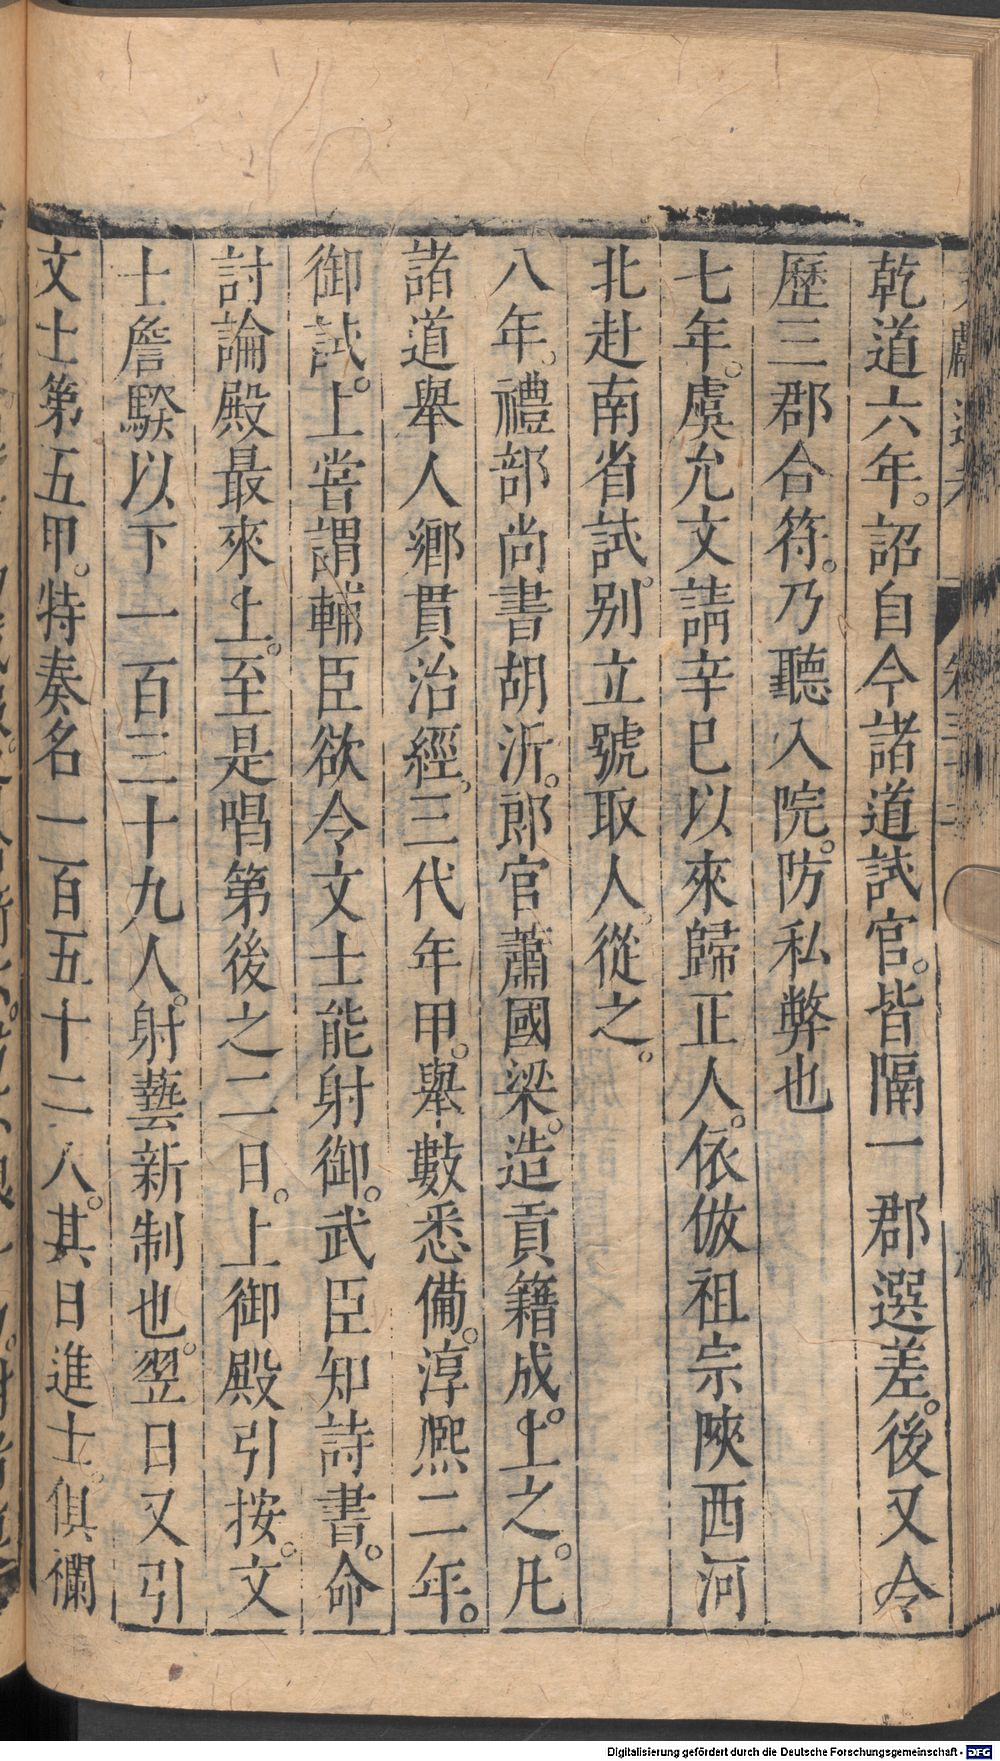 乾道六年。詔自今諸道試官。皆隔一郡選差。後又令
歷三郡合符。乃聽入院。防私弊也
七年。虞允文請辛巳以來歸正人。依倣祖宗陝西河
北赴南省試。别立號取人。從之。
八年。禮部尚書胡沂。郎官蕭國梁。造貢籍成。上之。凡
諸道舉人鄉貫治經。三代年甲。舉數悉備。淳熈二年。
御試。上嘗謂輔臣欲令文士能射御。武臣知詩書。命
討論殿最來上。至是唱第後之二日。上御殿引按。文
士詹騤以下一百三十九人。射藝新制也。翌日又引
文士第五甲。特奏名一百五十二人。其日進士。俱襴
Digitalisierung gefördert durch die Deutsche Forschungsgemeinschaft - DFG